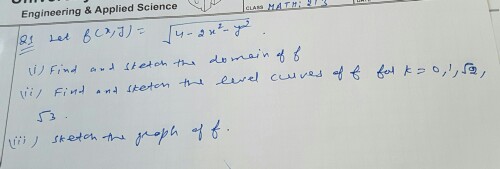 Engineering & Applied Science
CLASS MATH: 213
Q1 Let f(x,y) = √(4-2x²-y²) .
(i) Find and sketch the domain of f
(ii) Find and sketch the level curves of f for k = 0, 1, √2,
√3.
(iii) sketch the graph of f.